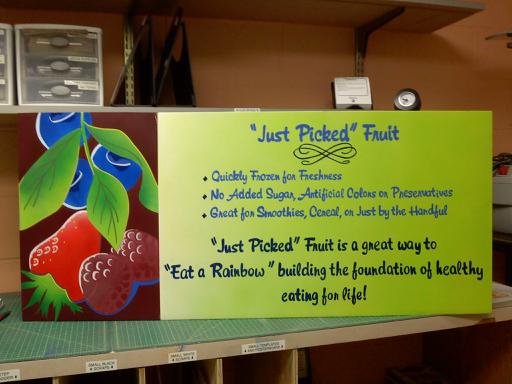 "Just Picked" Fruit
Quickly Frozen for Freshness
No Added Sugar, Artificial Colors or Preservatives
Great for Smoothies, Cereal, or Just by the Handful
"Just Picked" Fruit is a great way to
"Eat a Rainbow" building the foundation of healthy
eating for life!
SMALL BLACK
SCRAPS
SMALL WHITE
SCRAPS
SMALL TEMPLATES